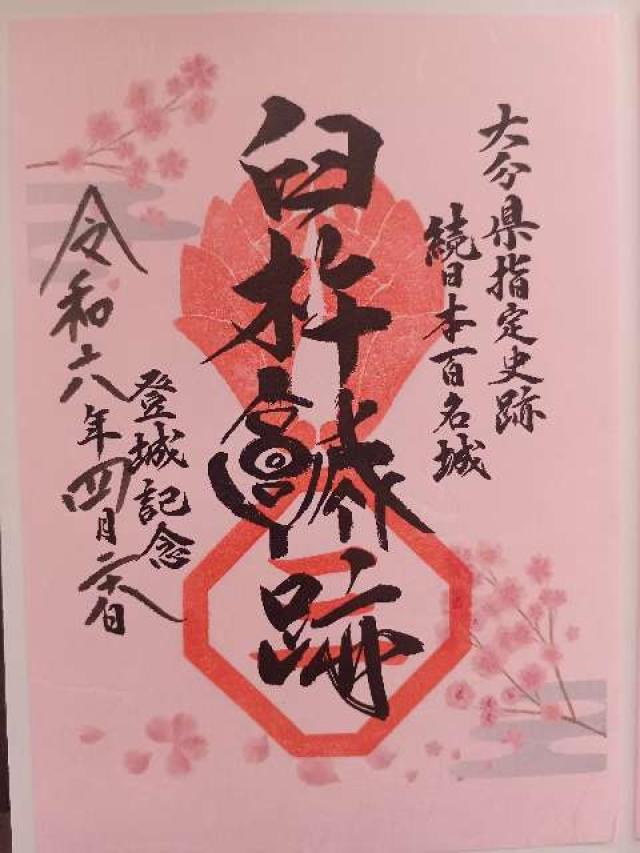 大分県指定史跡
続日本百名城
臼杵城跡
登城記念
令和六年四月日